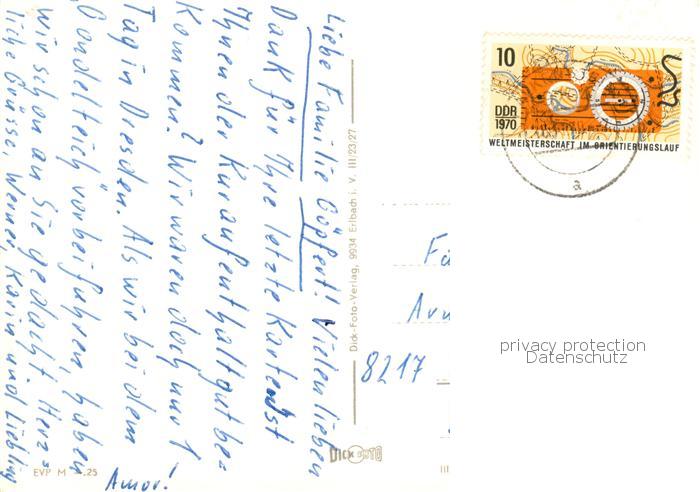 Liebe Familie Göpfert! Vielen lieben
Dank für Ihre letzte Karte. Ist
Ihnen der Kuraufenthalt gut be=
kommen? Wir waren doch nur 1
Tag in Dresden. Als wir bei dem
Gondelteich vorbei fuhren, haben
wir schon an Sie gedacht. Herz=
liche Grüsse, Werner, Karin und Liebling
Amor!
EVP M -.25
Dick-Foto-Verlag, 9934 Erlbach i. V. III/23/27
DICK FOTO
10
DDR
1970
WELTMEISTERSCHAFT IM ORIENTIERUNGSLAUF
a
Fa
8217
privacy protection
Datenschutz